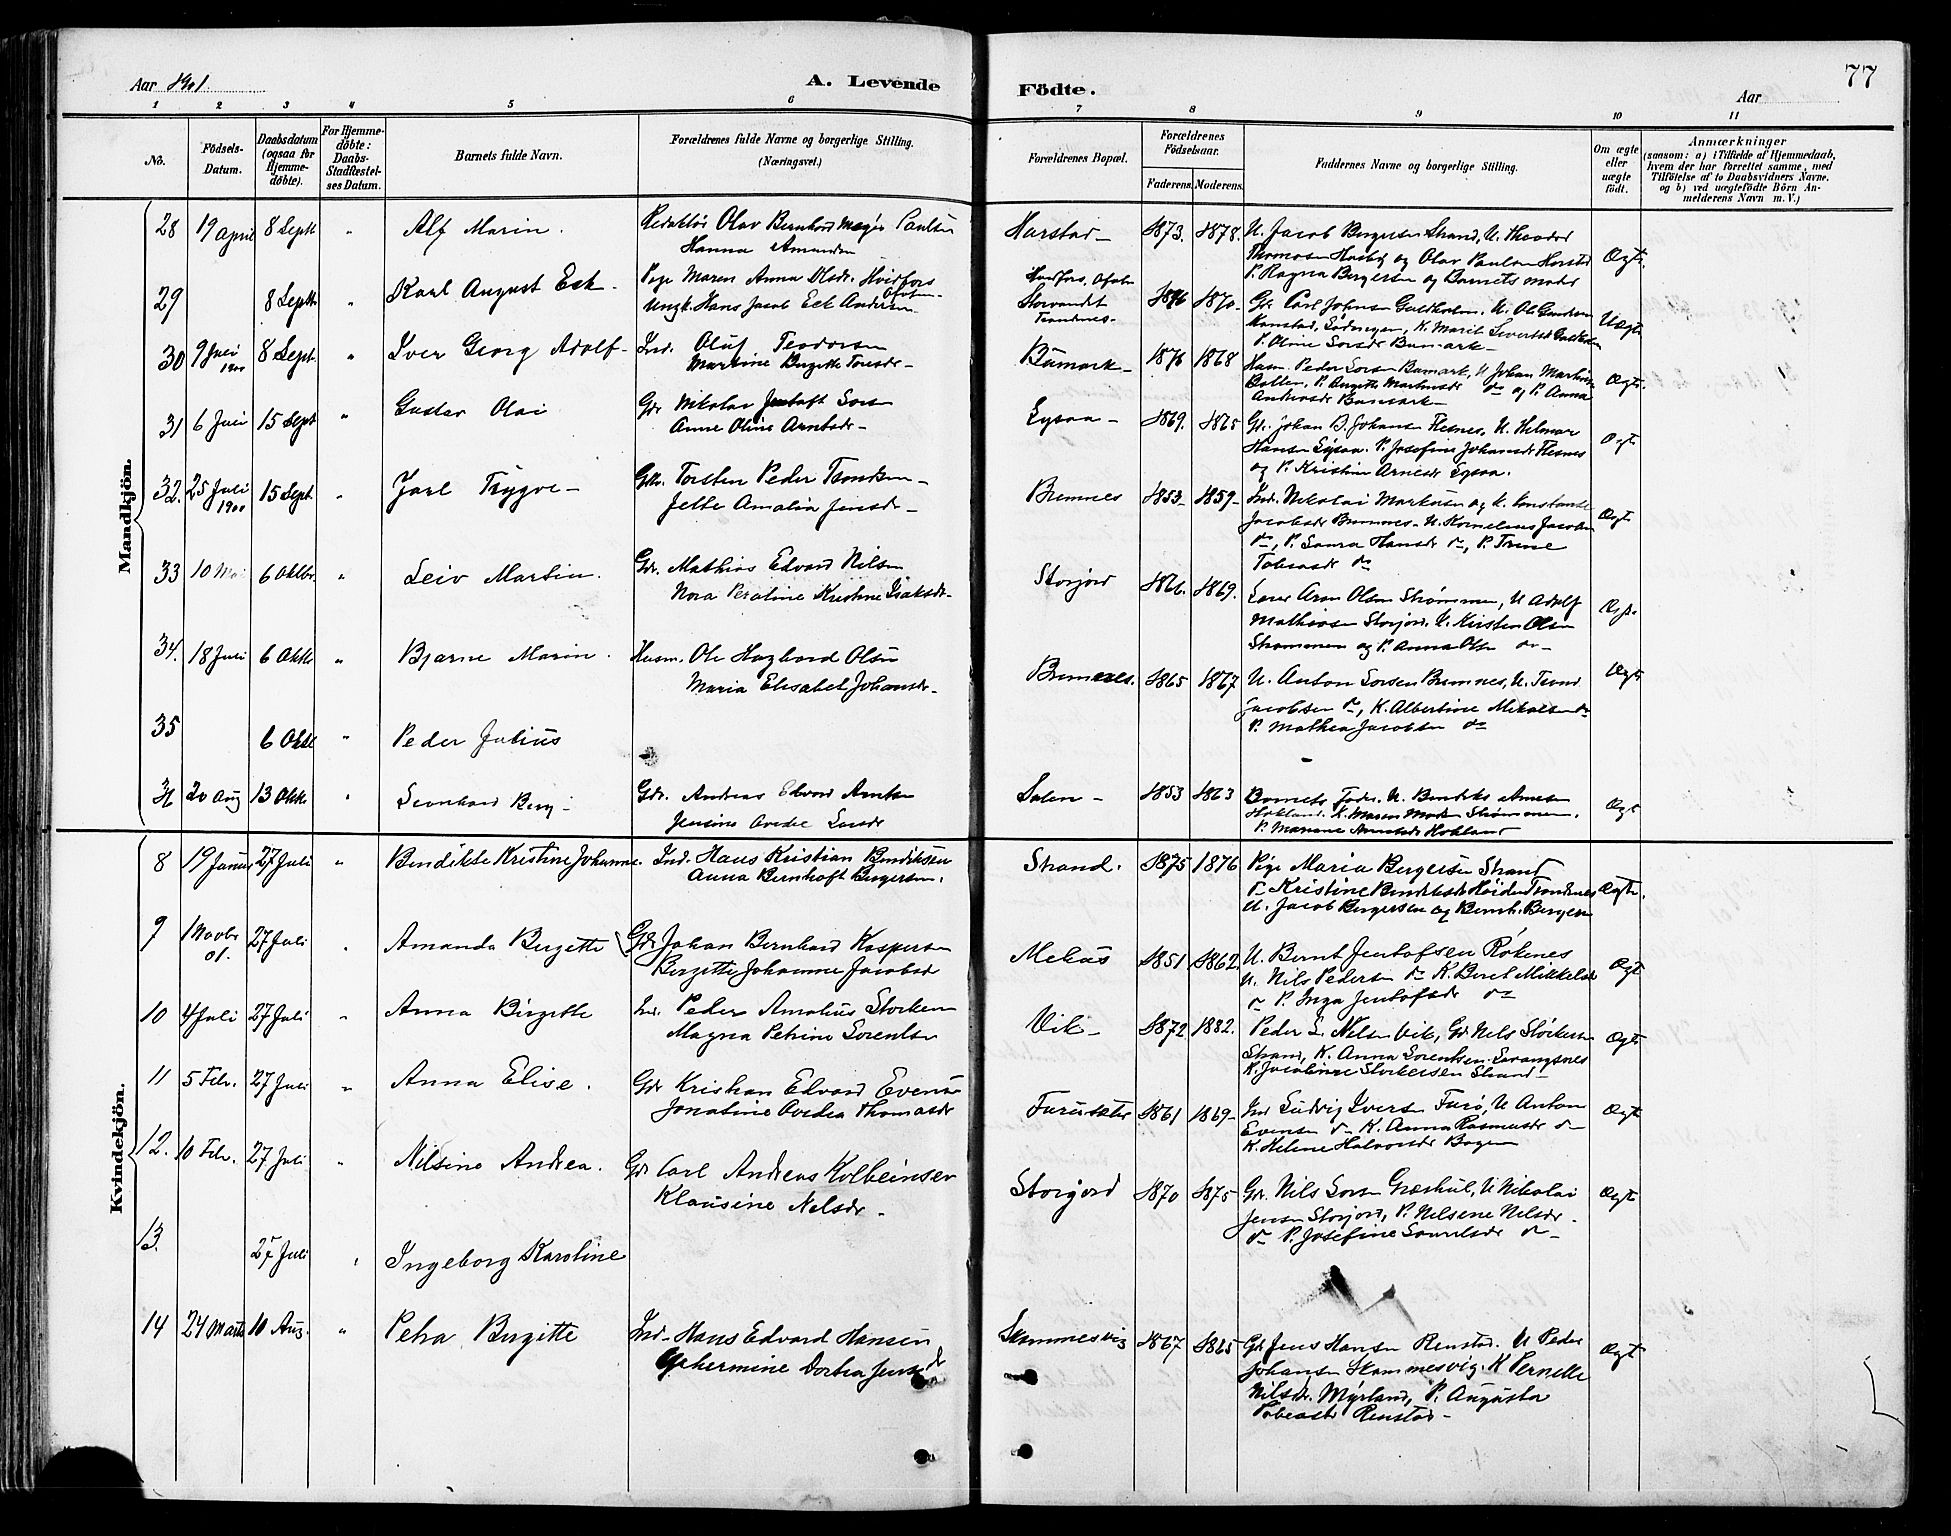 Aar 1901.
A. Levende
Födte.
Aar
77
1 2 3 4 5 6 7 8 9 10 11
No.
Födsels-
Datum.
Daabsdatum
(ogsaa for
Hjemme-
døbte).
For Hjemme-
døbte:
Daabs-
Stadfæstel-
ses Datum.
Barnets fulde Navn.
Forældrenes fulde Navne og borgerlige Stilling.
(Næringsvei.)
Forældrenes Bopæl.
Forældrenes
Födselsaar.
Faderens. Moderens.
Faddernes Navne og borgerlige Stilling.
Om ægte
eller
uægte
födt.
Anmærkninger
(sansom: a) i Tilfælde af Hjemmedaab,
hvem der har forrettet samme, med
Tilföielse af to Daabsvidners Navne,
og b) ved uægtefödte Börn An-
melderens Navn m. V.)
Mandkjön.
28 19 April 8 Septb " Alf Marin. Redaktör Olav Bernhard Paulsen
Hanna Amanda
Harstad 1873. 1878. U. Jacob Bergersen Strand, U. Theodor
Thomasen og Olav Paulsen Harstad
P. Ragna Bergersen og Barnets moder
Ægte.
29 8 Septb " Karl August Eek Pige Maren Anna Hvidfors
Ungk. Hans Jacob Eek Andersen
Storvandt
Trondnes
1876 1870 Carl Johnsen U. Ole
P. Oline Larsdr Bumark
Uægte
30 9 Juli 1900 8 Sept. " Iver Georg Adolf Ind. Oluf Teodorsen
Martine Birgitte Tomdr
Bumark 1876 1868 Husm. Peder Larsen Bumark, U. Johan
P. Birgitte Do og P. Anna
Andreasdr Bumark
Ægte
31 6 Juli 15 Sept " Gustav Olai Gdr Nikolai Jentoft Larsen
Anne Oline Arntsdr
Lysaa 1869. 1865 Gdr. Johan B. Johansen Flesnes, U. Hilmar
Hansen Lysaa. P. Josefine Johansdr Flesnes
og P. Kristine Arnesdr Lysaa.
Ægt
32. 25 Juli 1900 15 Sept. " Jarl Trygve Gdr. Torsten Peder Trondsen
Jette Amalia Jensdr
Bremnes 1853 1859 Ind. Nikolai Markusen og K. Constanse
Jacobsdr Bremnes U. Kornelius Jacobsen
Do, P. Laura Hansdr Do, P. Trine
Tobiasdr Do
Ægt
33 10 Mai 6 Oktbr " Leiv Martin. Gdr. Mathias Edvard Nilsen
Nora Peraline Kristine Isaksdr
Storjord 1866. 1869. Lærer Aron Olsen Strømmen, U. Adolf
Mathisen Storjord. K. Kirsten Olsen
Strømmen og P. Anna Olsen Do
Ægt.
34. 18 Juli 6 Oktbr " Bjarne Marin. Husm. Ole Hagbard Olsen
Maria Elisabet Johansdr
Bremnes. 1865 1867 U. Anton Larsen Bremnes, U. Trond
Jacobsen Do, K. Albertine Mikalsen Do
P. Mathea Jacobsen Do
Ægt
35 6 Okt " Peder Julius
36 20 Aug 13 Oktb " Leonhard Berg Gdr. Andreas Edvard Arntsen
Jensine Ovedie Larsdr
Salen 1853 1863 Barnets Fader. U. Bendiks Arnesen
Hokland. K. Maren Strømmen,
P. Mariane Arntsdr Hokland
Ægt
Kvindekjön.
8 19 Januar 27 Juli " Bendikte Kristine Johanne. Ind. Hans Kristian Bendiksen
Anna Bernhoft Bergersen.
Strand. 1875 1876 Pige Maria Bergersen Strand
P. Kristine Bendiksdr Trondnes
U. Jacob Bergersen og Bernh. Bergersen
Ægte.
9 1 Novbr 01. 27 Juli " Amanda Birgette Gdr Johan Bernhard Kaspersen
Birgitte Johanne Jacobsdr
Mekus 1851. 1862. U. Bernt Jentofsen Røkenes
U. Nils Pedersen Do K. Beret Mikkelsdr
Do P. Inga Jentofsdr Do
Ægt
10 4 Juli 27 Juli " Anna Birgitte Ind. Peder Amalius Storkersen
Magna Petrine Sorentsen
Vik 1872 1882. Peder L. Nilsen Vik, Gdr Nils Storkersen
Strand, K. Anna Sorentsen Sørvangsnes
K. Jacobine Storkersen Strand
Ægte
11 5 Febr. 27 Juli " Anna Elise. Gdr Kristian Edvard Evensen
Jonatine Ovedia Thomasdr
1861 1869 Ind Ludvig Iversen Furø, U Anton
Evensen Do K. Anna Rasmusdr Do
K. Helene Halvorsdr Bogen
Ægt
12. 10 Febr. 27 Juli " Nilsine Andrea. Gdr Carl Andreas Kolbeinsen
Klausine Nilsdr
Storjord 1870 1875 Gdr. Nils Larsen Græshul, U Nikolai
Jensen Storjord, P. Nilsene Nilsdr
Do P. Josefine Samuelsdr Do
Ægt
13. 27 Juli " Ingeborg Karoline
14 24 Marts 10 Aug. " Petra Birgitte Ind. Hans Edvard Hansen
Gjehermine Dortea Jensdr
Skammesvig 1867 1865 Gdr Jens Hansen Renstad. U Peder
Johansen Skammesvig. K Pernelle
Nilsdr. Myrland, P. Augusta
Tobiasdr Renstad
Ægt